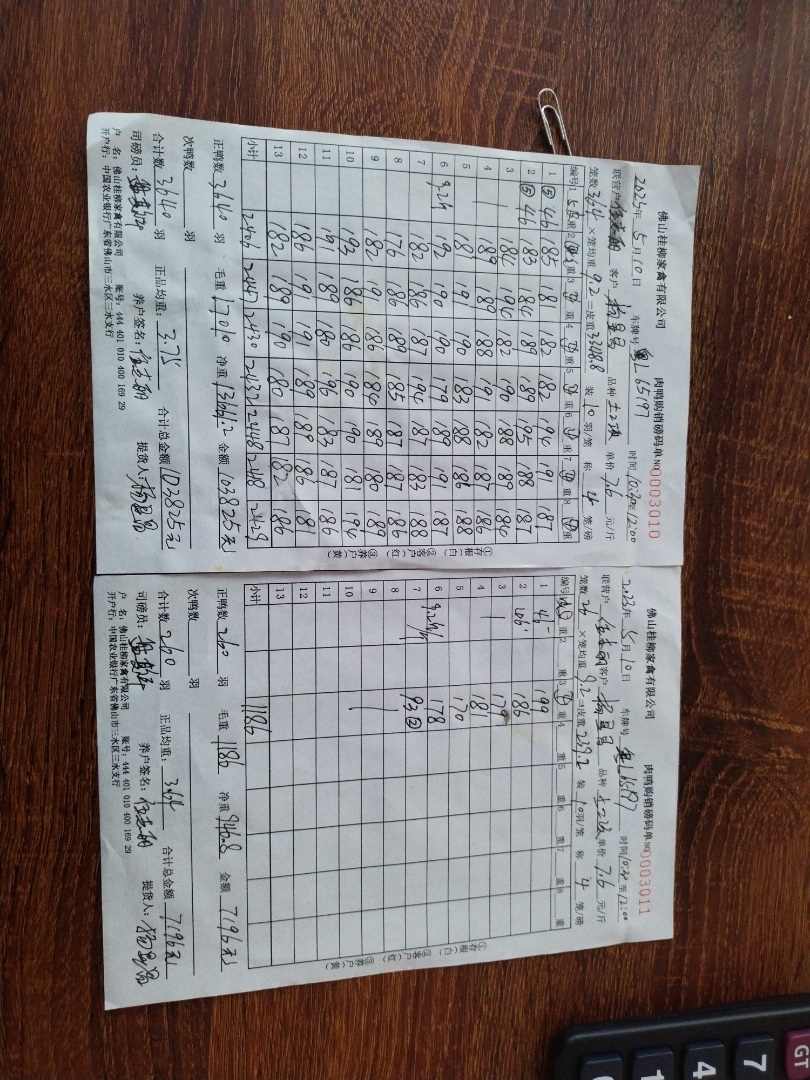 佛山桂柳家禽有限公司 肉鸭购销磅码单 NO 0003010
2023年 5月10日 车牌号 粤L65197 时间 10:30至12:00
联营户 客户 品种 单价 7.6 元/斤
笼数 364 ×笼均重 9.2 =皮重 3348.8 装 10 羽/笼 称 4 笼/磅
编号 1 重 2 重 3 重 4 重 5 重 6 重 7 重 8 重
1 ⑤46 185 181 182 182 194 191 187
2 ⑤46 183 184 189 191 195 188 187
3 184 194 182 190 188 189 184
4 189 189 188 191 182 187 186
5 181 191 190 183 188 186 188
6 9.2斤 192 190 190 179 189 191 187
7 182 186 187 194 187 183 188
8 176 186 189 185 187 187 186
9 182 191 184 184 189 180 189
10 193 186 186 190 190 191 194
11 191 189 180 196 183 187 186
12 186 191 191 189 189 186 181
13 182 189 190 180 187 182 186
小计 2406 2447 2430 2437 2448 2429
①存根(白) ②客户(红) ③养户(黄)
正鸭数 3640 羽 毛重 17010 净重 13661.2 金额 103825元
次鸭数 羽
合计数 3640 羽 正品均重: 3.75 合计总金额 103825元
司磅员: 养户签名: 提货人:
户 名: 佛山桂柳家禽有限公司 账号: 444 401 010 400 169 29
开户行: 中国农业银行广东省佛山市三水区三水支行
佛山桂柳家禽有限公司 肉鸭购销磅码单 NO 0003011
2023年 5月10日 车牌号 粤L65197 时间 10:30至12:00
联营户 客户 品种 单价 7.6 元/斤
笼数 26 ×笼均重 9.2 =皮重 239.2 装 10 羽/笼 称 4 笼/磅
编号 1 重 2 重 3 重 4 重 5 重 6 重 7 重 8 重
1 46 199
2 46 186
3 179
4 181
5 170
6 9.2斤/ 178
7 93②
8
9
10
11
12
13
小计 1186
①存根(白) ②客户(红) ③养户(黄)
正鸭数 260 羽 毛重 1186 净重 946.8 金额 7196元
次鸭数 羽
合计数 260 羽 正品均重: 3.64 合计总金额 7196元
司磅员: 养户签名: 提货人:
户 名: 佛山桂柳家禽有限公司 账号: 444 401 010 400 169 29
开户行: 中国农业银行广东省佛山市三水区三水支行
GT
7
4
1
0